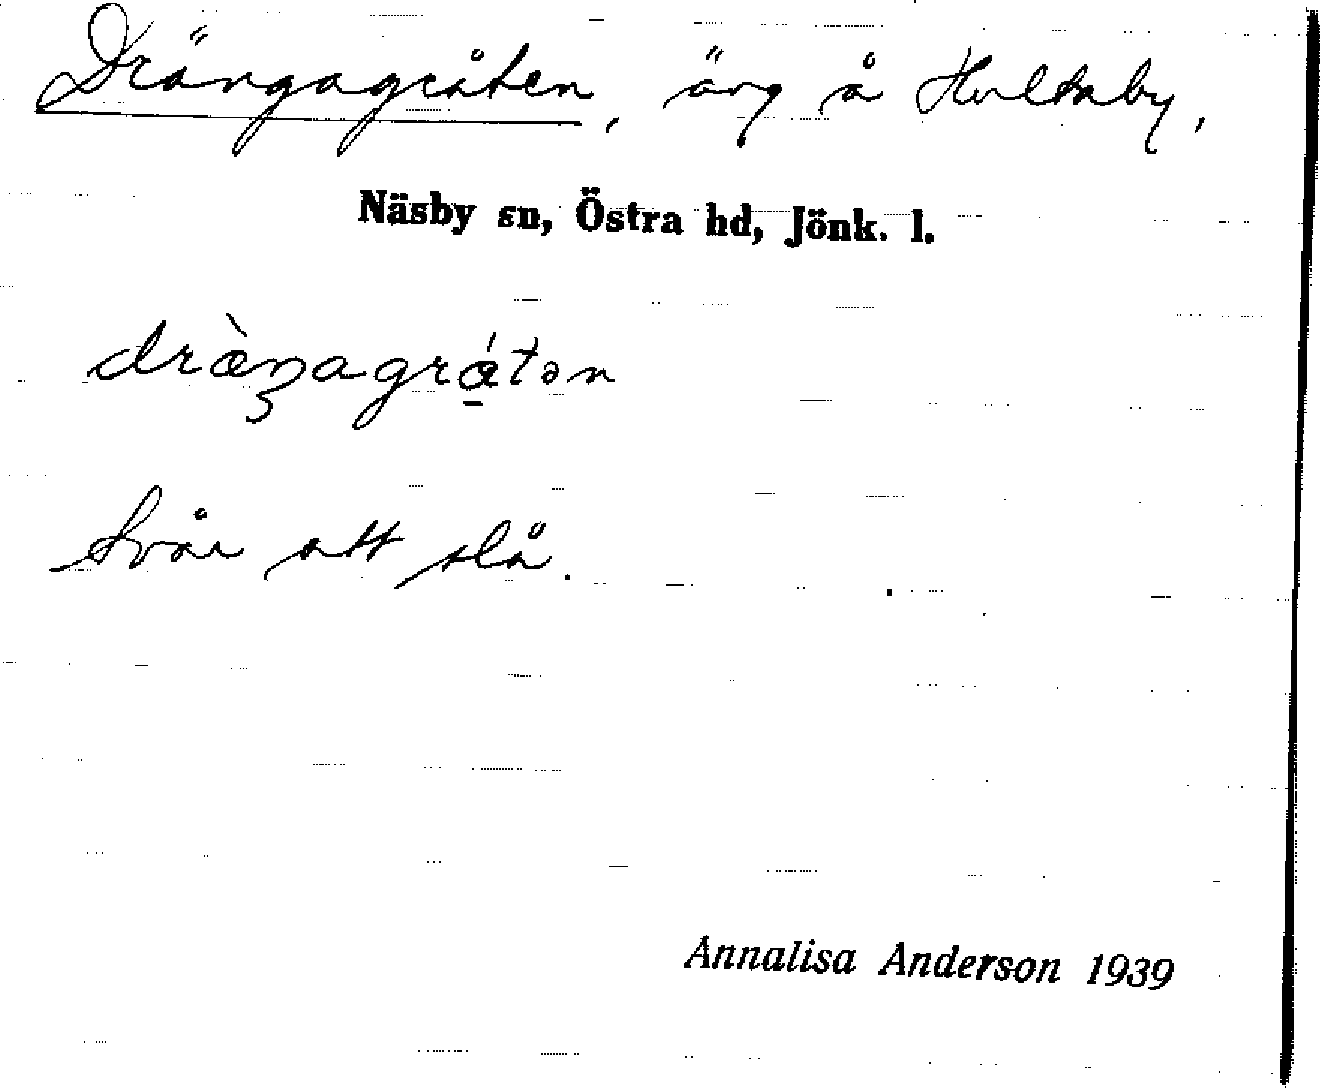 Drängagråten, äng å Hultaby,
Näsby sn, Östra hd, Jönk. l.
dræ̀ŋagrátən
Svår att slå.
Annalisa Anderson 1939